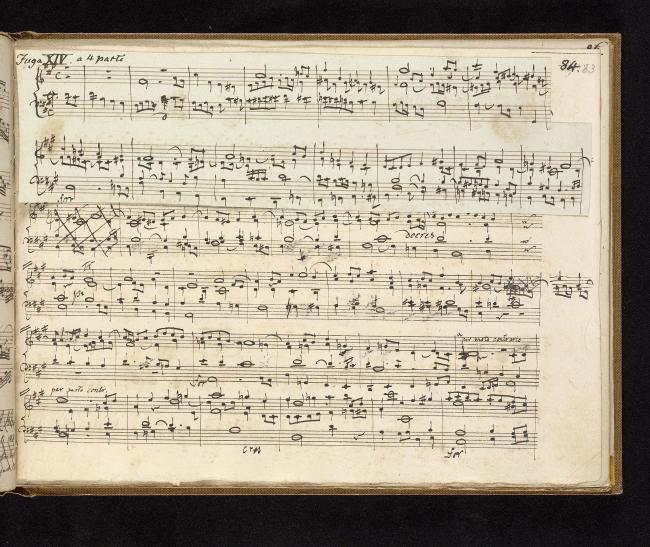 Fuga XIV. a 4 parti
84. 83
for
decres
per moto contrario
per moto contr.
for
cres
for